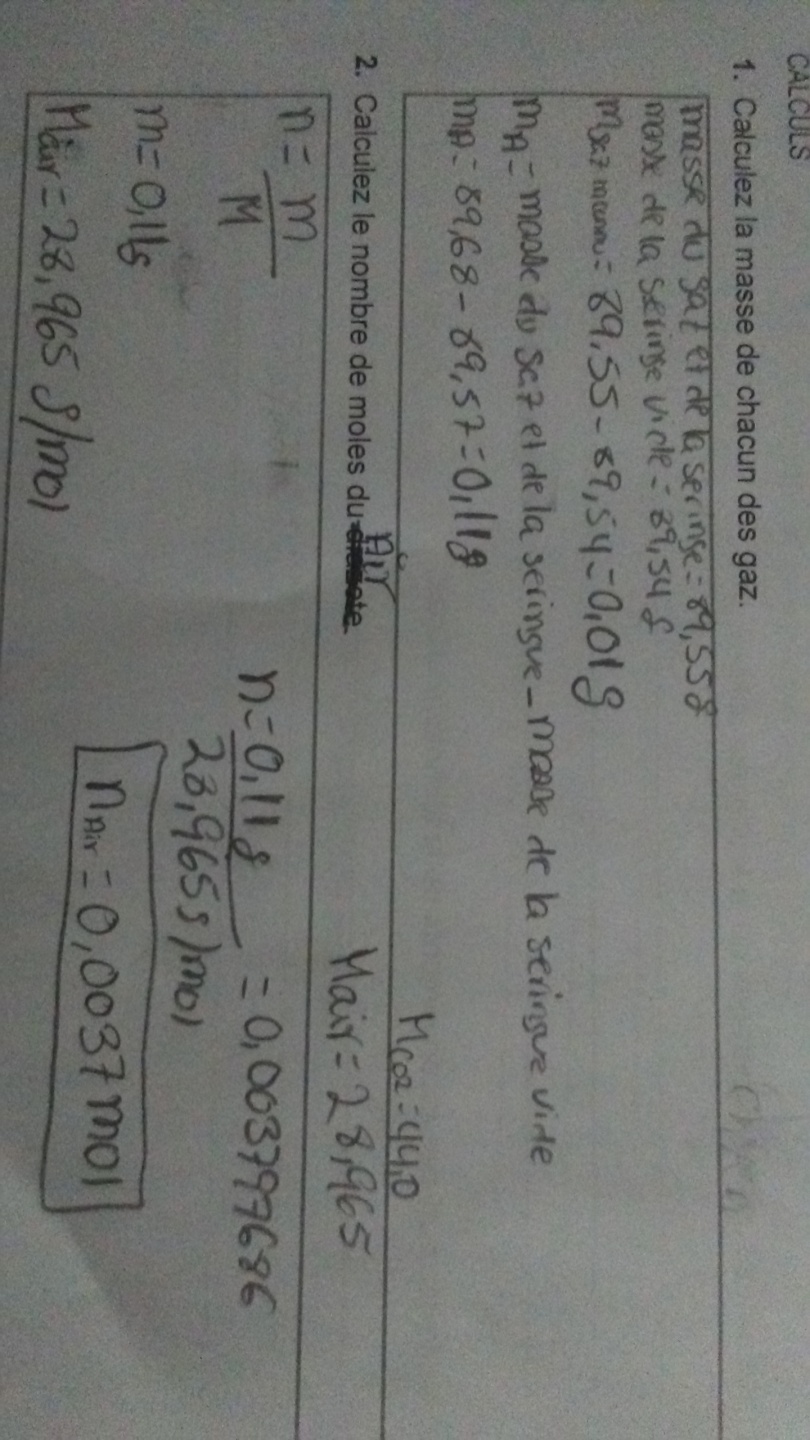 CALCULS
1. Calculez la masse de chacun des gaz.
masse du gaz et de la seringe = 89,55g
masse de la seringe vide = 89,54 g
= 89,55 - 89,54 = 0,01g
mA = masse du gaz et de la seringue - masse de la seringue vide
mA = 89,68 - 89,57 = 0,11g
MCO2 = 44,0
2. Calculez le nombre de moles du Air
Mair = 28,965
n = m/M
n = 0,11g / 28,965 g/mol = 0,003797686
m = 0,11g
Mair = 28,965 g/mol
nAir = 0,0037 mol